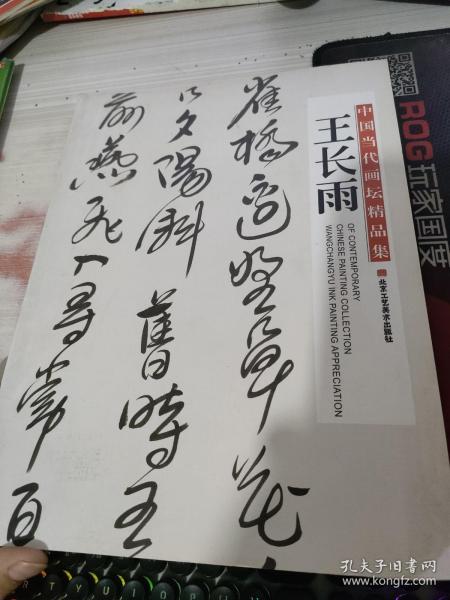 中国当代画坛精品集
王长雨
OF CONTEMPORARY
CHINESE PAINTING COLLECTION
WANGCHANGYU INK PAINTING APPRECIATION
北京工艺美术出版社
雀桥边野草花
口夕阳斜 旧时王
前燕飞入寻常百
ROG玩家国度
孔夫子旧书网
www.kongfz.com